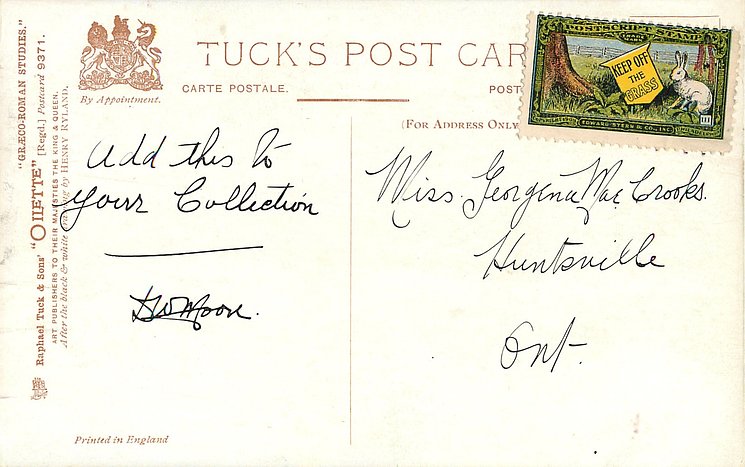 "GRÆCO-ROMAN STUDIES."
Raphael Tuck & Sons' "OILETTE" [Regd.] Postcard 9371.
ART PUBLISHERS TO THEIR MAJESTIES THE KING & QUEEN.
After the black & white by HENRY RYLAND.
By Appointment.
TUCK'S POST CAR
CARTE POSTALE.
POST
(FOR ADDRESS ONLY
POSTSCRIPT STAMP
KEEP OFF
THE
GRASS
EDWARD STERN & CO., INC.
Add this to
your Collection
Miss. Georgena MacCrooks.
Huntsville
Ont.
Printed in England